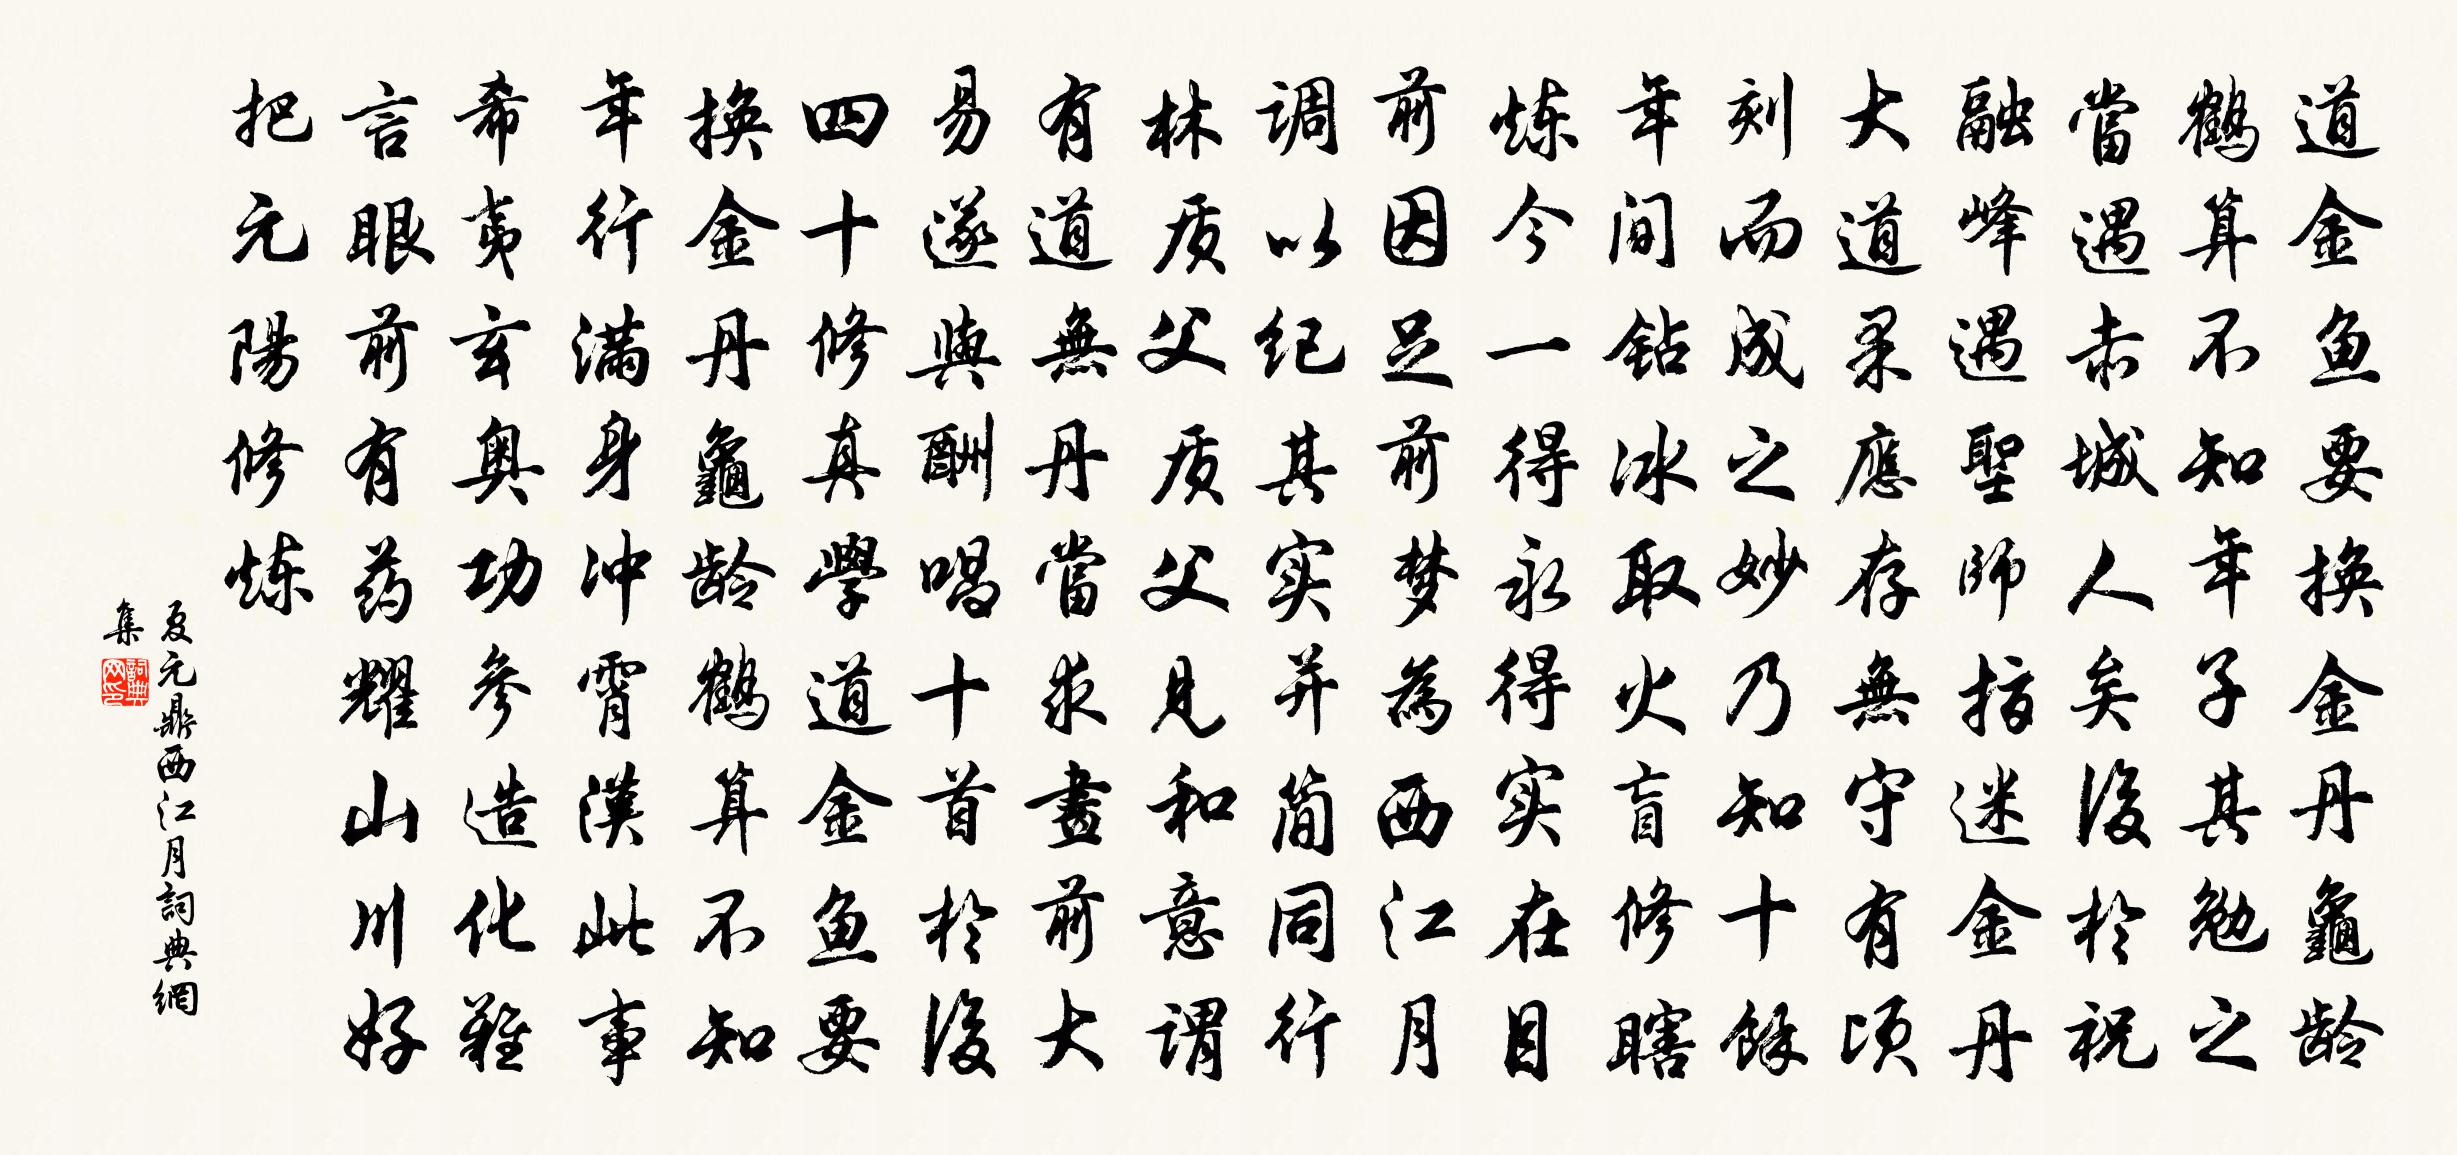 道金鱼要换金丹龜龄
鶴算不知年子其勉之
當遇赤城人矣後於祝
融峰遇聖師指迷金丹
大道果應存無守有頃
刻而成之妙乃知十餘
年间钻冰取火盲修瞎
炼今一得永得实在目
前因足前梦為西江月
调以纪其实并简同行
林质父质父见和意谓
有道無丹當求晝前大
易遂與酬唱十首於後
四十修真學道金鱼要
换金丹龜龄鶴算不知
年行满身冲霄漢此事
希夷玄奥功参造化難
言眼前有药耀山川好
把元陽修炼
夏元鼎西江月詞典網
集
詞典网印